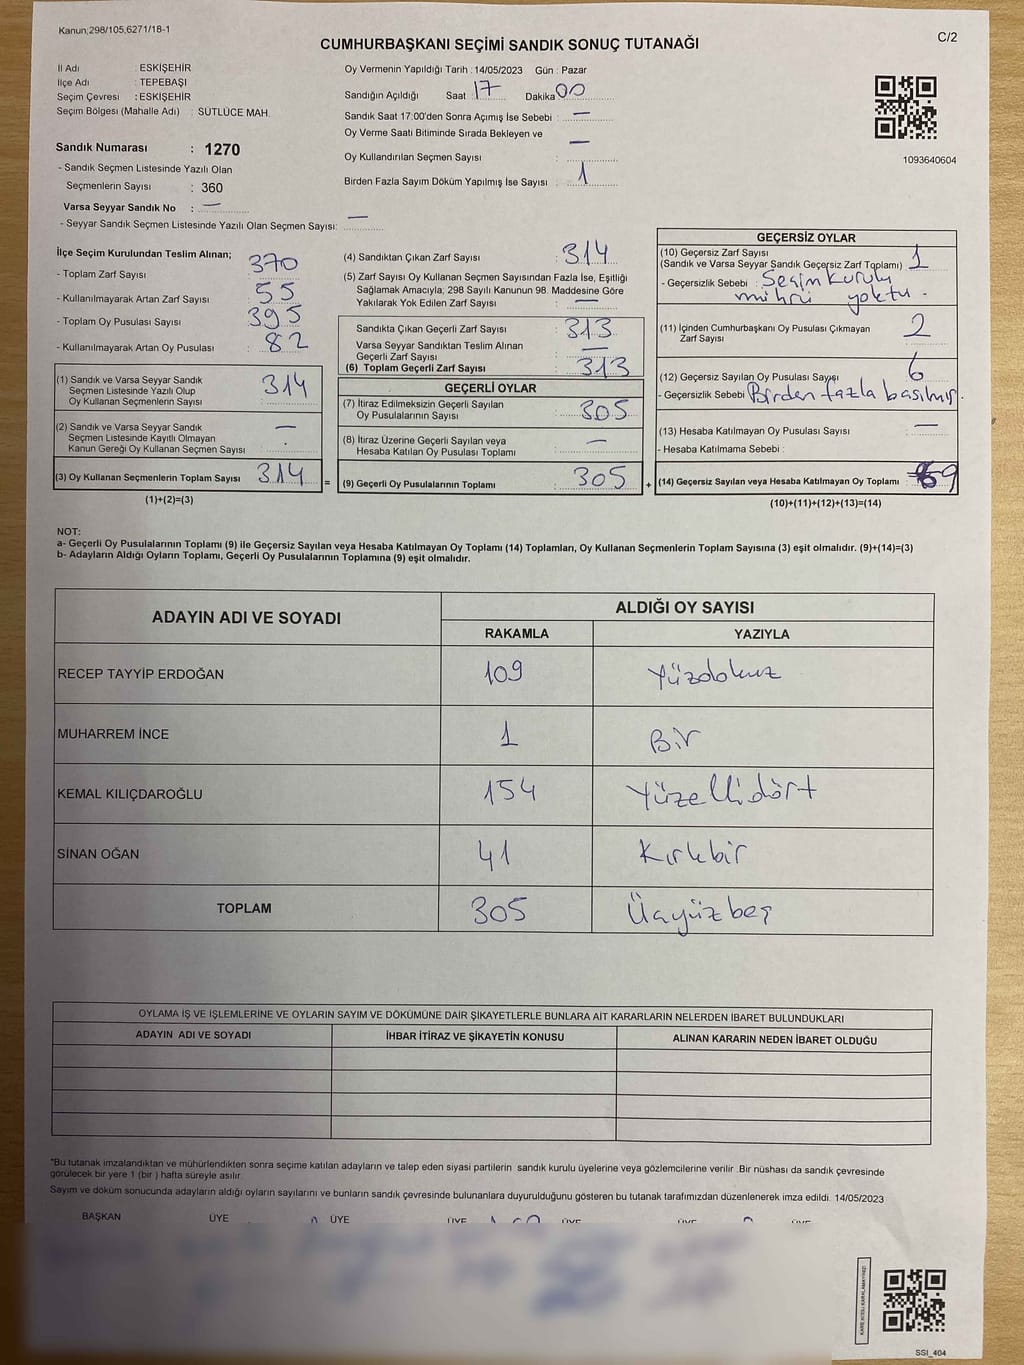 Kanun;298/105,6271/18-1
C/2
CUMHURBAŞKANI SEÇİMİ SANDIK SONUÇ TUTANAĞI
İl Adı : ESKİŞEHİR
İlçe Adı : TEPEBAŞI
Seçim Çevresi : ESKİŞEHİR
Seçim Bölgesi (Mahalle Adı) : SÜTLÜCE MAH.
Sandık Numarası : 1270
- Sandık Seçmen Listesinde Yazılı Olan
Seçmenlerin Sayısı : 360
Varsa Seyyar Sandık No : —
- Seyyar Sandık Seçmen Listesinde Yazılı Olan Seçmen Sayısı: —
Oy Vermenin Yapıldığı Tarih : 14/05/2023 Gün : Pazar
Sandığın Açıldığı Saat 17 Dakika 00
Sandık Saat 17:00'den Sonra Açımış İse Sebebi : —
Oy Verme Saati Bitiminde Sırada Bekleyen ve
Oy Kullandırılan Seçmen Sayısı : —
Birden Fazla Sayım Döküm Yapılmış İse Sayısı : 1
1093640604
İlçe Seçim Kurulundan Teslim Alınan;
- Toplam Zarf Sayısı : 370
- Kullanılmayarak Artan Zarf Sayısı : 55
- Toplam Oy Pusulası Sayısı : 395
- Kullanılmayarak Artan Oy Pusulası : 82
(1) Sandık ve Varsa Seyyar Sandık
Seçmen Listesinde Yazılı Olup
Oy Kullanan Seçmenlerin Sayısı : 314
(2) Sandık ve Varsa Seyyar Sandık
Seçmen Listesinde Kayıtlı Olmayan
Kanun Gereği Oy Kullanan Seçmen Sayısı : —
(3) Oy Kullanan Seçmenlerin Toplam Sayısı : 314
(1)+(2)=(3)
=
(4) Sandıktan Çıkan Zarf Sayısı : 314
(5) Zarf Sayısı Oy Kullanan Seçmen Sayısından Fazla İse, Eşitliği
Sağlamak Amacıyla; 298 Sayılı Kanunun 98. Maddesine Göre
Yakılarak Yok Edilen Zarf Sayısı : —
Sandıkta Çıkan Geçerli Zarf Sayısı : 313
Varsa Seyyar Sandıktan Teslim Alınan
Geçerli Zarf Sayısı : —
(6) Toplam Geçerli Zarf Sayısı : 313
GEÇERLİ OYLAR
(7) İtiraz Edilmeksizin Geçerli Sayılan
Oy Pusulalarının Sayısı : 305
(8) İtiraz Üzerine Geçerli Sayılan veya
Hesaba Katılan Oy Pusulası Toplamı : —
(9) Geçerli Oy Pusulalarının Toplamı : 305
+
GEÇERSİZ OYLAR
(10) Geçersiz Zarf Sayısı
(Sandık ve Varsa Seyyar Sandık Geçersiz Zarf Toplamı) : 1
- Geçersizlik Sebebi : Seçim kurulu
mührü yoktu -
(11) İçinden Cumhurbaşkanı Oy Pusulası Çıkmayan
Zarf Sayısı : 2
(12) Geçersiz Sayılan Oy Pusulası Sayısı : 6
- Geçersizlik Sebebi : Birden fazla basılmış.
(13) Hesaba Katılmayan Oy Pusulası Sayısı : —
- Hesaba Katılmama Sebebi :
(14) Geçersiz Sayılan veya Hesaba Katılmayan Oy Toplamı : 9
(10)+(11)+(12)+(13)=(14)
NOT:
a- Geçerli Oy Pusulalarının Toplamı (9) ile Geçersiz Sayılan veya Hesaba Katılmayan Oy Toplamı (14) Toplamları, Oy Kullanan Seçmenlerin Toplam Sayısına (3) eşit olmalıdır. (9)+(14)=(3)
b- Adayların Aldığı Oyların Toplamı, Geçerli Oy Pusulalarının Toplamına (9) eşit olmalıdır.
ADAYIN ADI VE SOYADI
ALDIĞI OY SAYISI
RAKAMLA YAZIYLA
RECEP TAYYİP ERDOĞAN 109 Yüzdokuz
MUHARREM İNCE 1 Bir
KEMAL KILIÇDAROĞLU 154 Yüzellidört
SİNAN OĞAN 41 Kırkbir
TOPLAM 305 Üçyüzbeş
OYLAMA İŞ VE İŞLEMLERİNE VE OYLARIN SAYIM VE DÖKÜMÜNE DAİR ŞİKAYETLERLE BUNLARA AİT KARARLARIN NELERDEN İBARET BULUNDUKLARI
ADAYIN ADI VE SOYADI İHBAR İTİRAZ VE ŞİKAYETİN KONUSU ALINAN KARARIN NEDEN İBARET OLDUĞU
*Bu tutanak imzalandıktan ve mühürlendikten sonra seçime katılan adayların ve talep eden siyasi partilerin sandık kurulu üyelerine veya gözlemcilerine verilir .Bir nüshası da sandık çevresinde
görülecek bir yere 1 (bir ) hafta süreyle asılır.
Sayım ve döküm sonucunda adayların aldığı oyların sayılarını ve bunların sandık çevresinde bulunanlara duyurulduğunu gösteren bu tutanak tarafımızdan düzenlenerek imza edildi. 14/05/2023
BAŞKAN ÜYE ÜYE ÜYE ÜYE ÜYE ÜYE
SSI_404